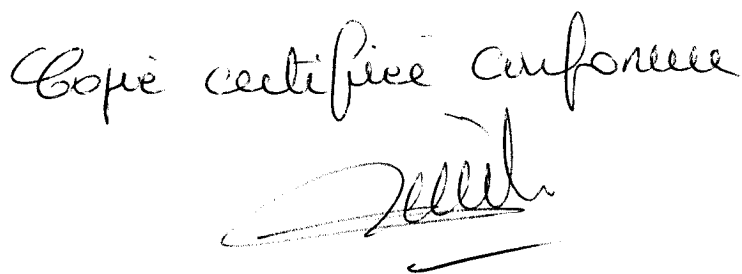 Copie certifiée conforme